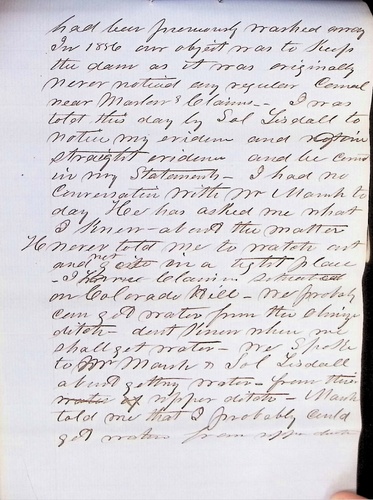 had been previously washed away
In 1856 our object was to keep
the dam as it was originally
never noticed any regular Canal
near Marlow's Claims - I was
told this day by Sol Tisdall to
notice my evidence and
straight evidence and be
in my Statements - I had no
Conversation with Mr Marsh to
day He has asked me what
I knew about the matter
He never told me to watch out
and not in a tight place
- I have Claims
on Colorado Hill - we probably
can get water from the above
ditch - dont know when we
shall get water - we spoke
to Mr Marsh & Sol Tisdall
about getting water from this
water of upper ditch - Marsh
told me that I probably could
get water from upper ditch